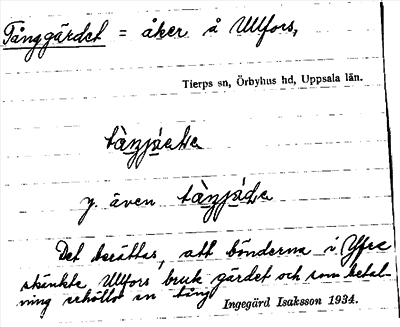 Tånggärdet = åker å Ullfors,
Tierps sn, Örbyhus hd, Uppsala län.
y. även
Det berättas, att bönderna i Yfre
skänkte Ullfors bruk gärdet och som betal-
ning erhöllo en tång
Ingegärd Isaksson 1934.